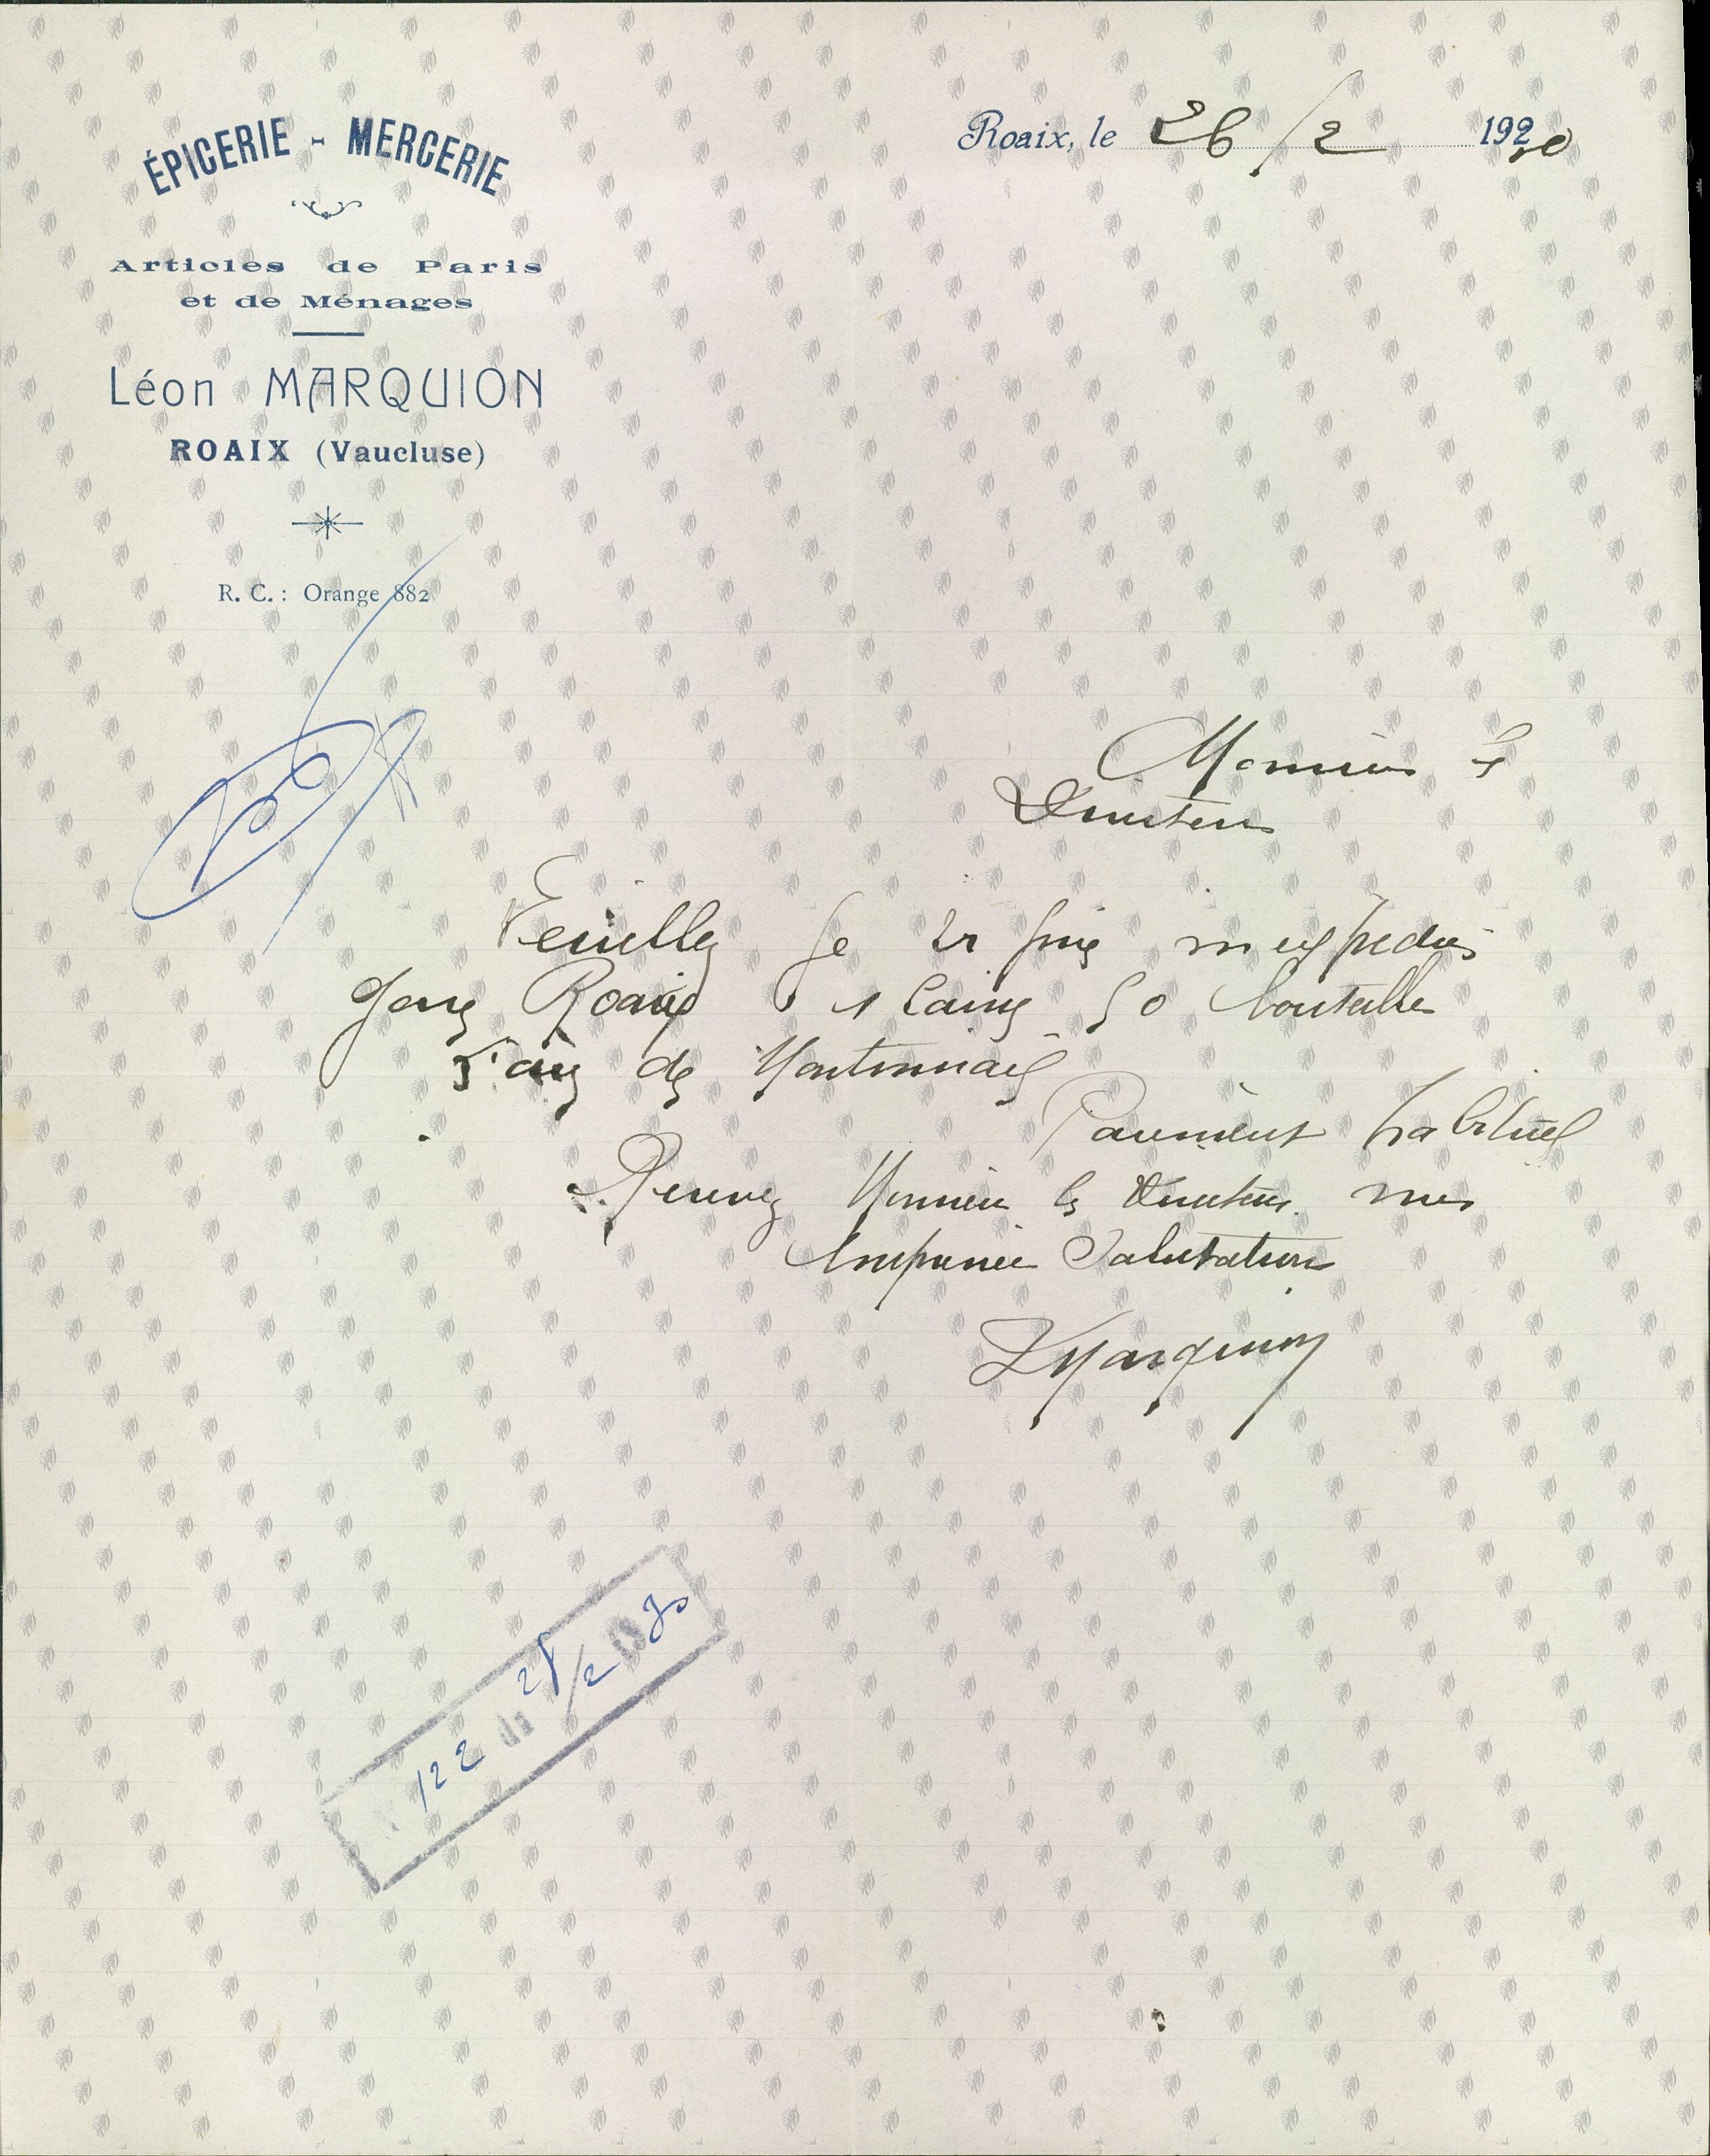 ÉPICERIE - MERCERIE
Articles de Paris
et de Ménages
Léon MARQUION
ROAIX (Vaucluse)
R. C. : Orange 882
Roaix, le 26/2 1930
Monsieur le
Directeur
Veuillez je vous prie m'expedier
Gare Roaix 1 Caisse 50 bouteilles
Eau de Montmirail
Paiement habituel
Recevez Monsieur le Directeur mes
Empressées Salutations
LMarquion
122 du 28/2 30